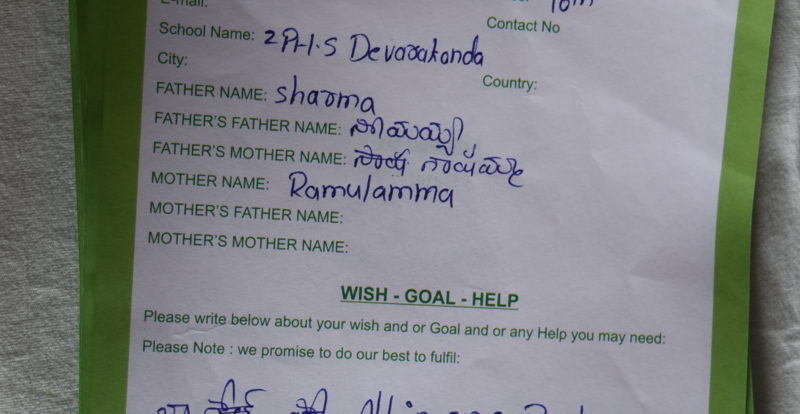 E-mail:
10th
Contact No
School Name: ZPH.S Devarakonda
City:
Country:
FATHER NAME: Sharma
FATHER'S FATHER NAME:
FATHER'S MOTHER NAME:
MOTHER NAME: Ramulamma
MOTHER'S FATHER NAME:
MOTHER'S MOTHER NAME:
WISH - GOAL - HELP
Please write below about your wish and or Goal and or any Help you may need:
Please Note : we promise to do our best to fulfil: